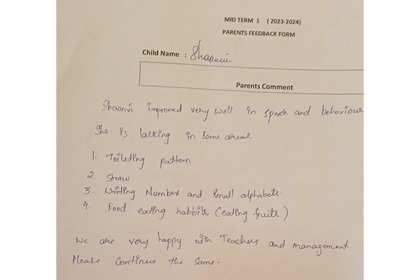 MID TERM 1 (2023-2024)
PARENTS FEEDBACK FORM
Child Name : Shaanvi
Parents Comment
Shaanvi improved very well in speech and behaviour
She is lacking in some areas
1. Toileting pattern
2 Straw
3. Writing Number and small alphabets.
4. Food eating habbits (eating fruits)
We are very happy with Teachers and management
Please continue the same.